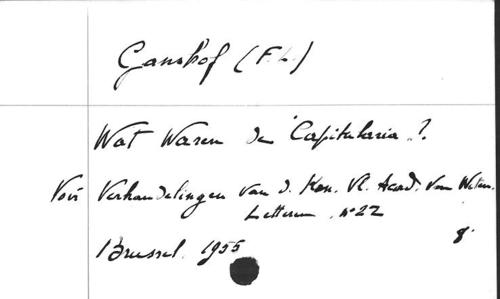 Ganshof (F.L.)
Wat Waren de "Capitularia"?
Voir Verhandelingen van d. Kon. Vl. Acad. van Weten.
Letteren n° 22
8°
Brussel 1955